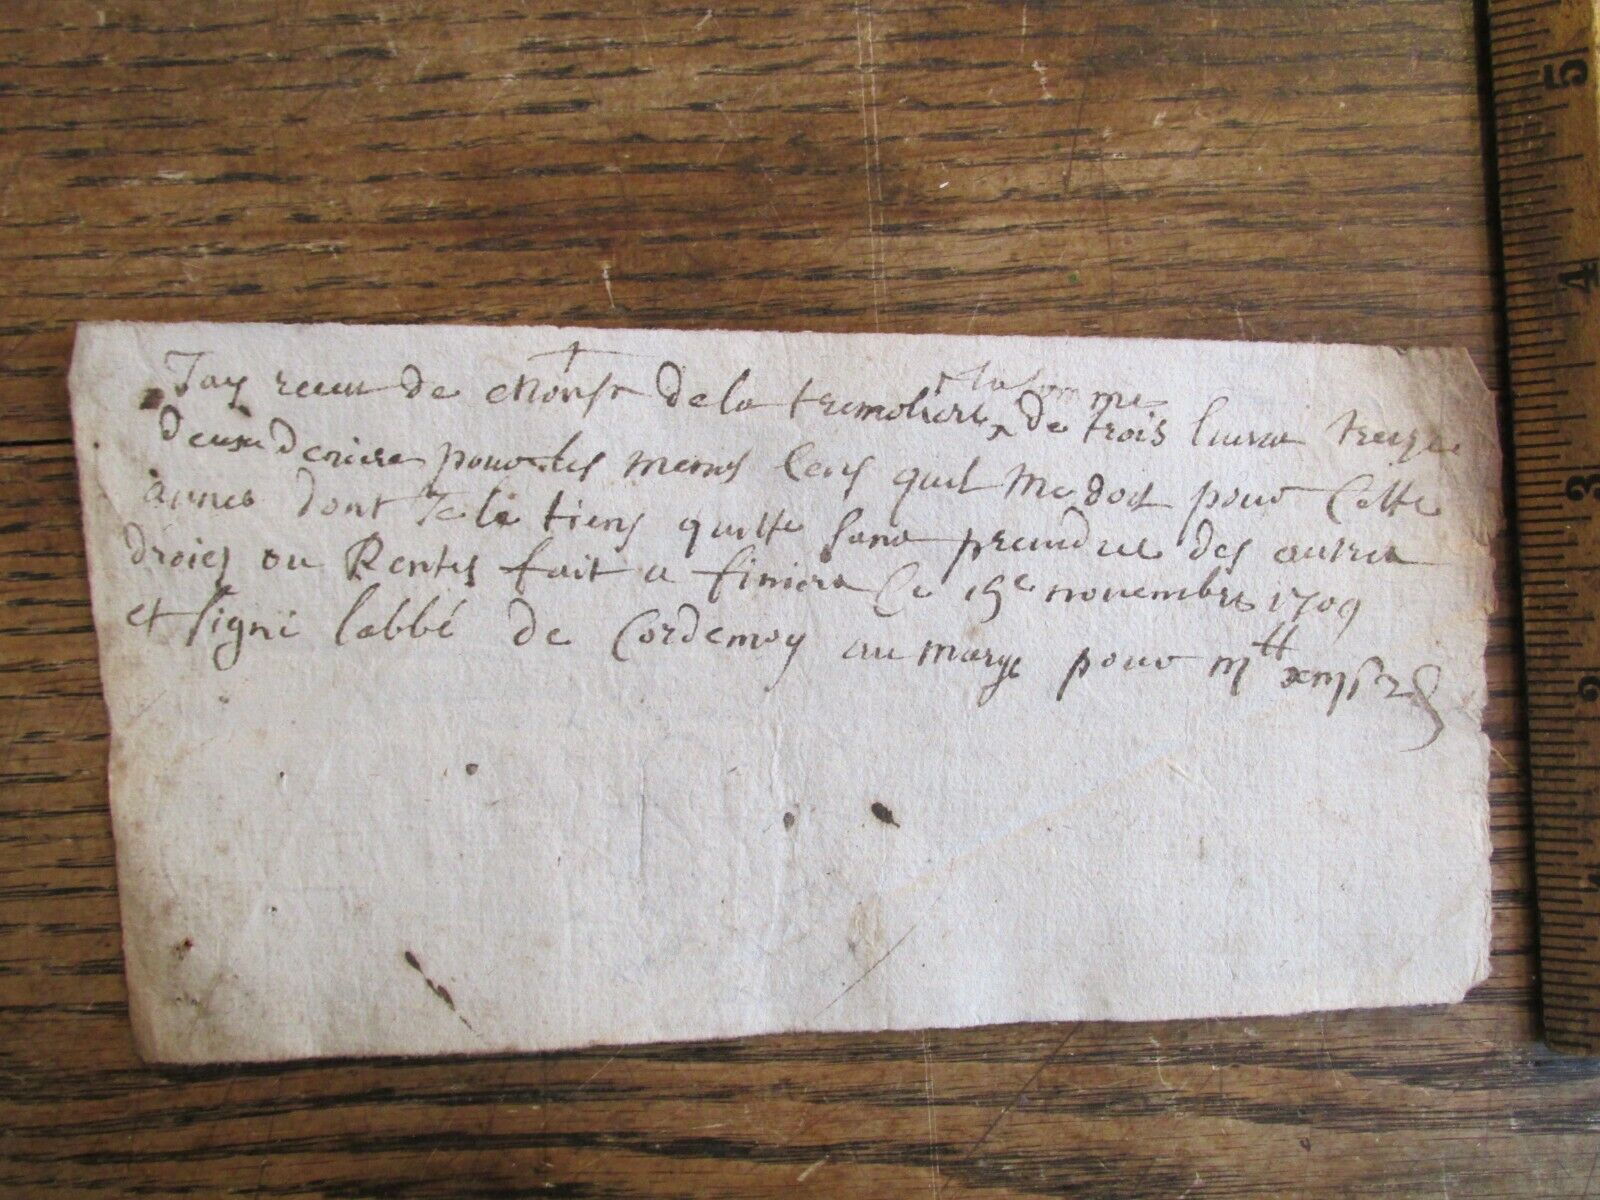 Jay receu de Monsr de la tremoliere la somme de trois livres treize
deux deniers pour les menus cens quil me doit pour cette
annee dont Je le tiens quitte sans preindre des autres
droies ou Rentes fait a finiera Ce 15e novembre 1709
et signé labbé de Cordemoy au marge pour
5
4
3
2